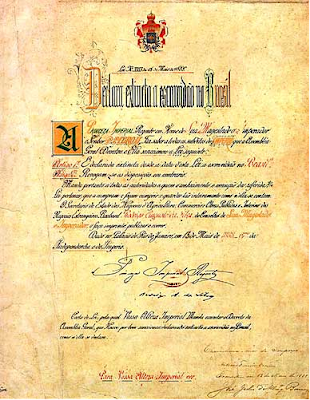 Declara extincta a escravidão no Brasil
A Princeza Imperial Regente em Nome de Sua Magestade o Imperador
o Senhor D. Pedro II Faz saber a todos os subditos do Imperio que a Assembléa
Geral Decretou e Ella sanccionou a Lei seguinte:
Artigo 1º É declarada extincta desde a data d'esta Lei a escravidão no Brazil.
Artigo 2º Revogam-se as disposições em contrario.
Manda portanto a todas as autoridades a quem o conhecimento e execução da referida
Lei pertencer, que a cumpram e façam cumprir e guardar tão inteiramente como n'ella se contem
O Secretario de Estado dos Negocios d'Agricultura, Commercio e Obras Publicas e Interino dos
Negocios Estrangeiros, Bacharel Rodrigo Augusto da Silva do Conselho de Sua Magestade
o Imperador, o faça imprimir, publicar e correr.
Dado no Palacio do Rio de Janeiro, em 13 de Maio de
Independencia e do Imperio.
Princeza Imperial Regente
Rodrigo A. da Silva
Carta de Lei, pela qual Vossa Alteza Imperial Manda executar o Decreto da
Assembléa Geral, que Houve por bem sanccionar declarando extincta a escravidão no Brazil,
como n'ella se declara.
Para Vossa Alteza Imperial ver.